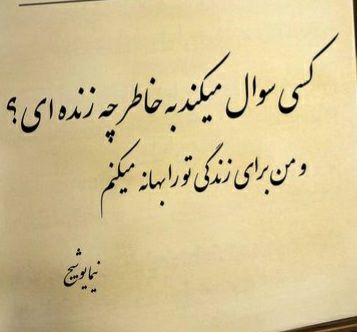 کسی سوال میکند به خاطر چه زنده ای؟
و من برای زندگی تو را بهانه میکنم
نیما یوشیج